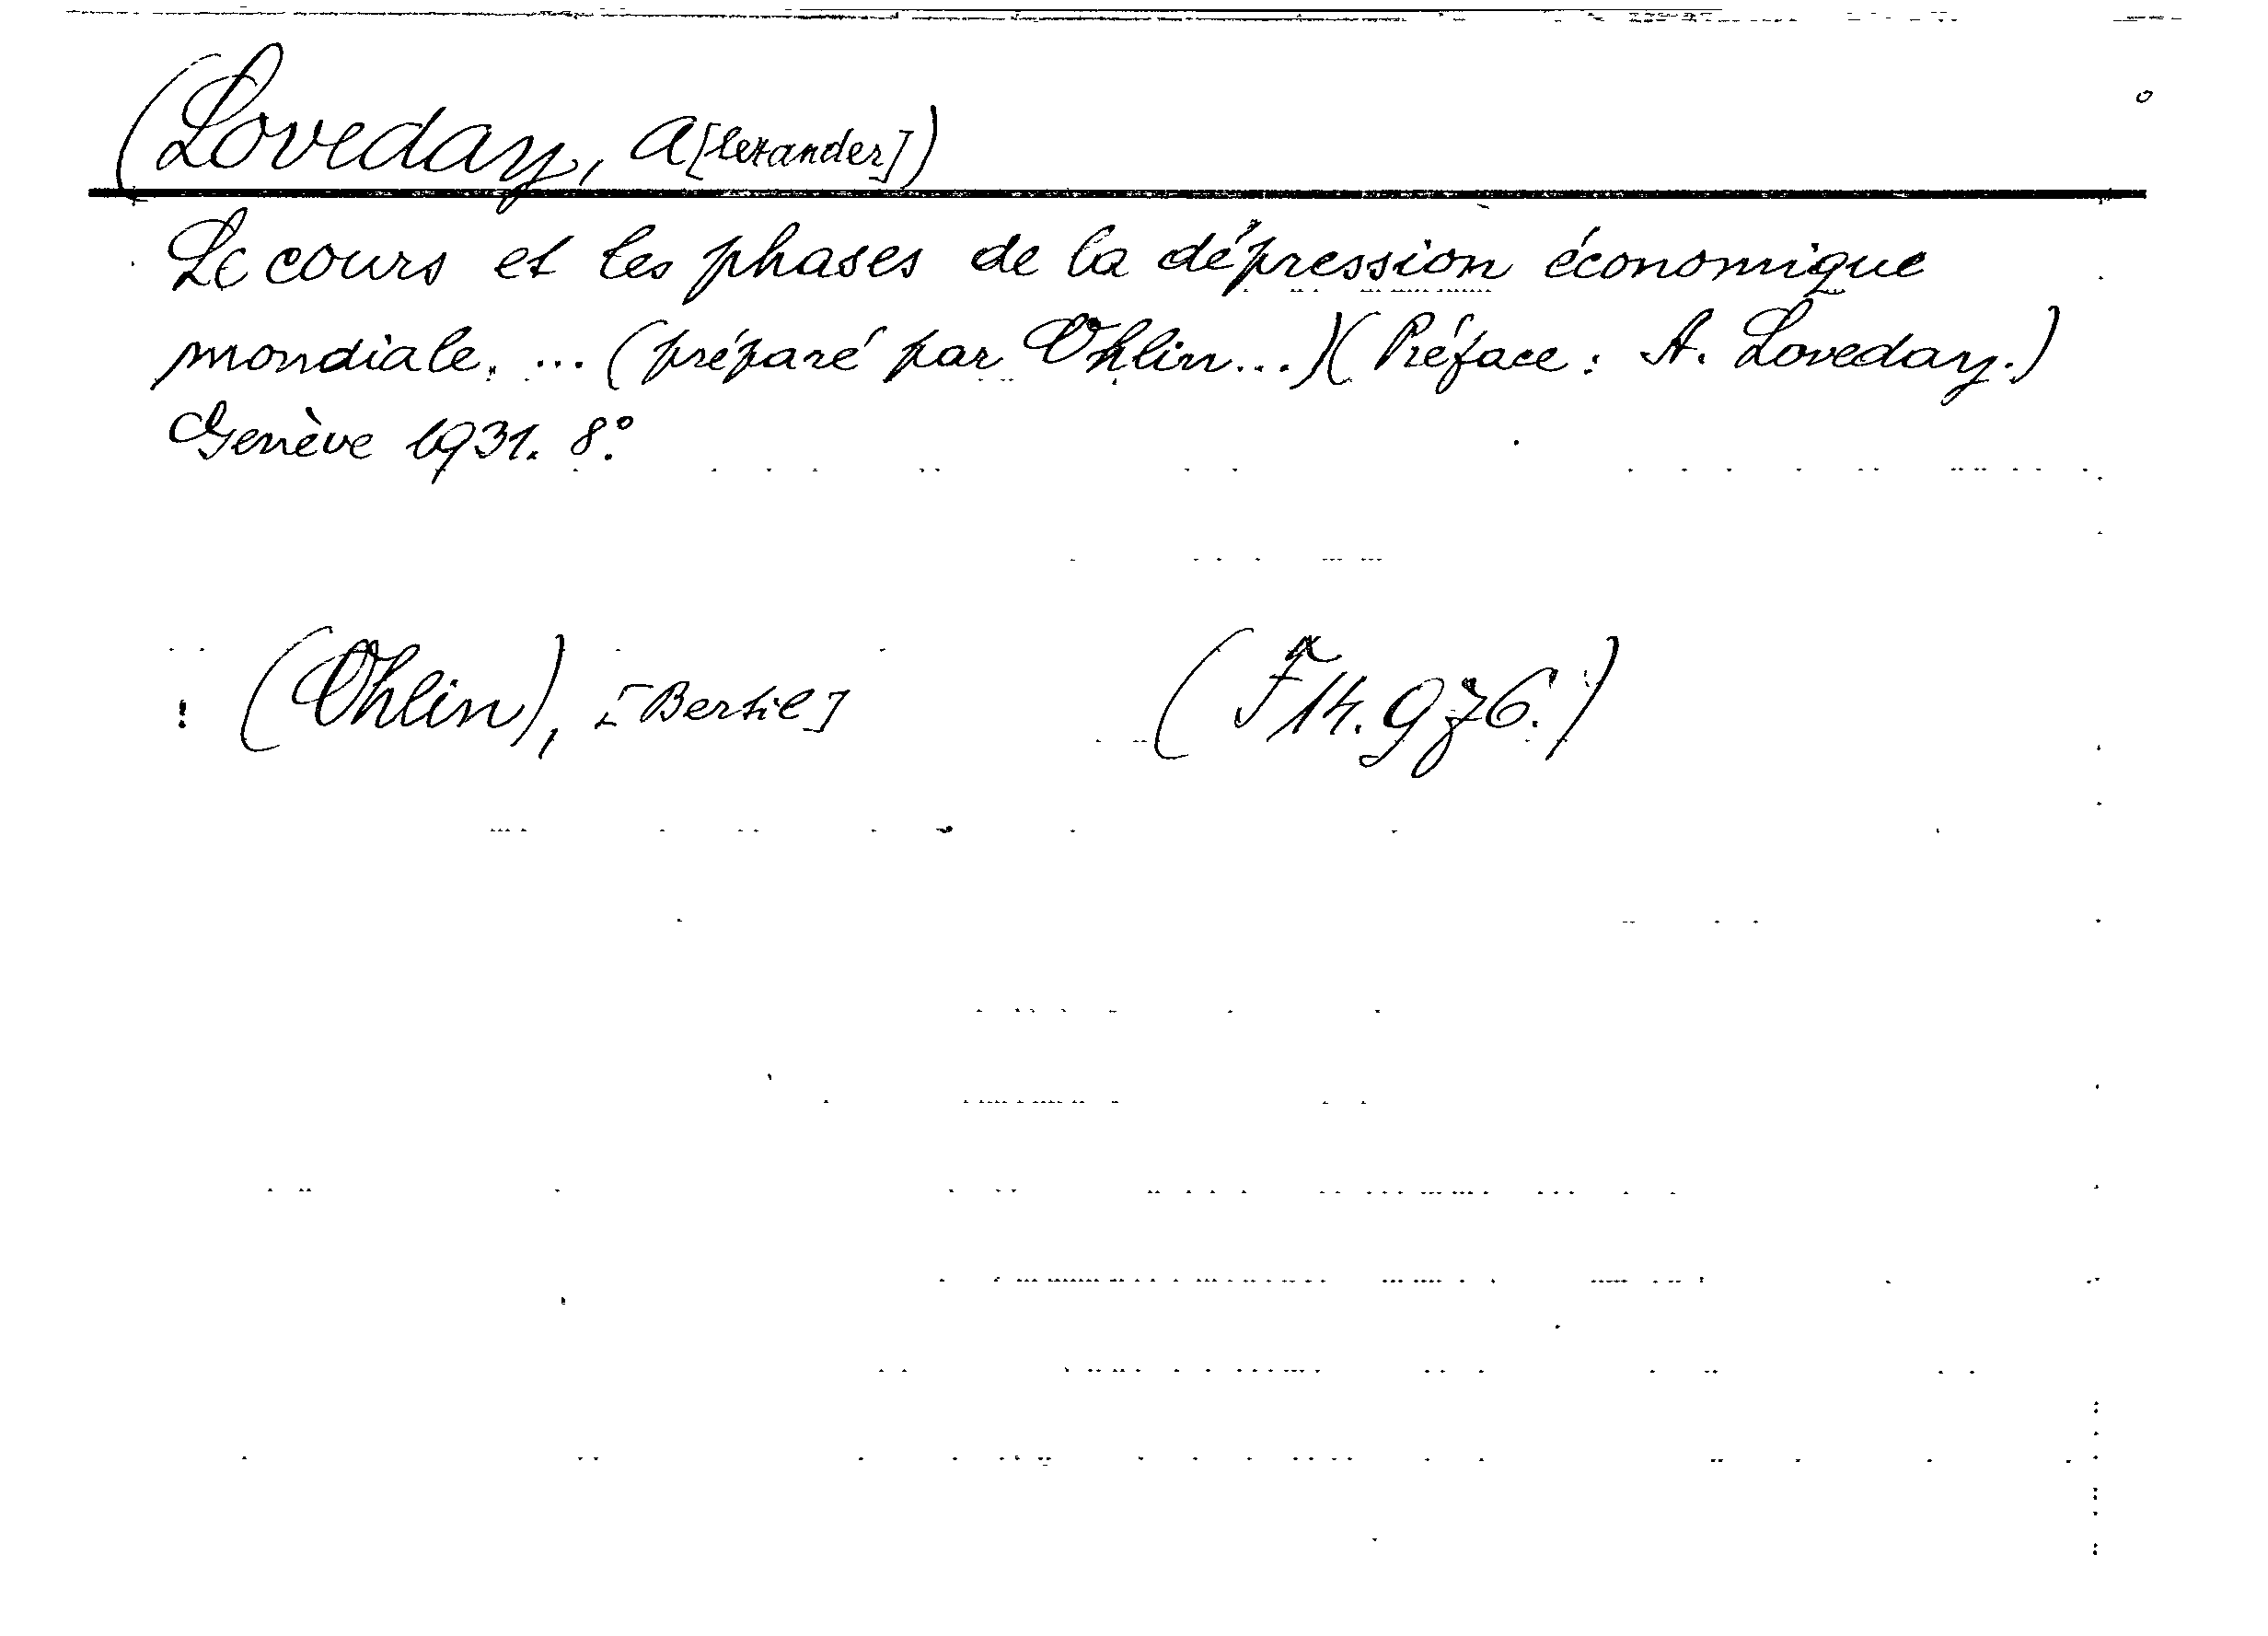 (Loveday, A[lexander])
Le cours et les phases de la dépression économique
mondiale. ... (préparé par Ohlin...)(Préface: A. Loveday.)
Genève 1931. 8°.
: (Ohlin), [Bertil] (F14.976.)